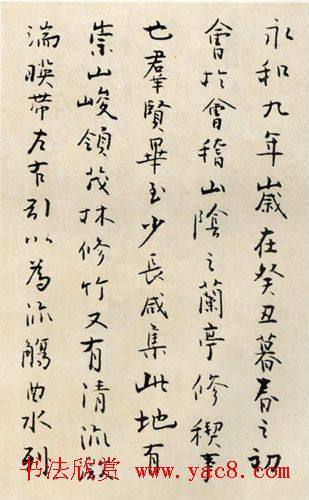 永和九年歲在癸丑暮春之初
會於會稽山陰之蘭亭修稧事
也羣賢畢至少長咸集此地有
崇山峻領茂林修竹又有清流激
湍暎帶左右引以為流觴曲水列
书法欣赏 www.yac8.com